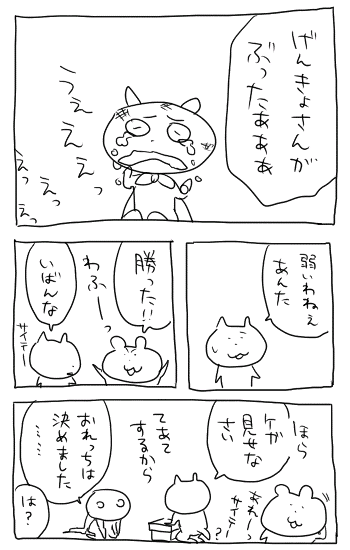 げんきょさんが
ぶったぁぁぁ
うぇ
ぇぇ
ぇっ
ぇっ
ぇっ
弱いわねぇ
あんた
勝った!!
わふーーっ
いばんな
サイテー
ほら
ケガ
見せな
さい
てあて
するから
あれーっ
サイテー
?
おれっちは
決めました
……
は?